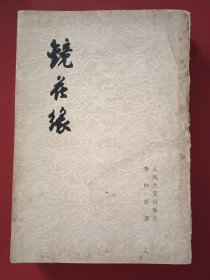 镜花缘
李汝珍 著
人民文学出版社